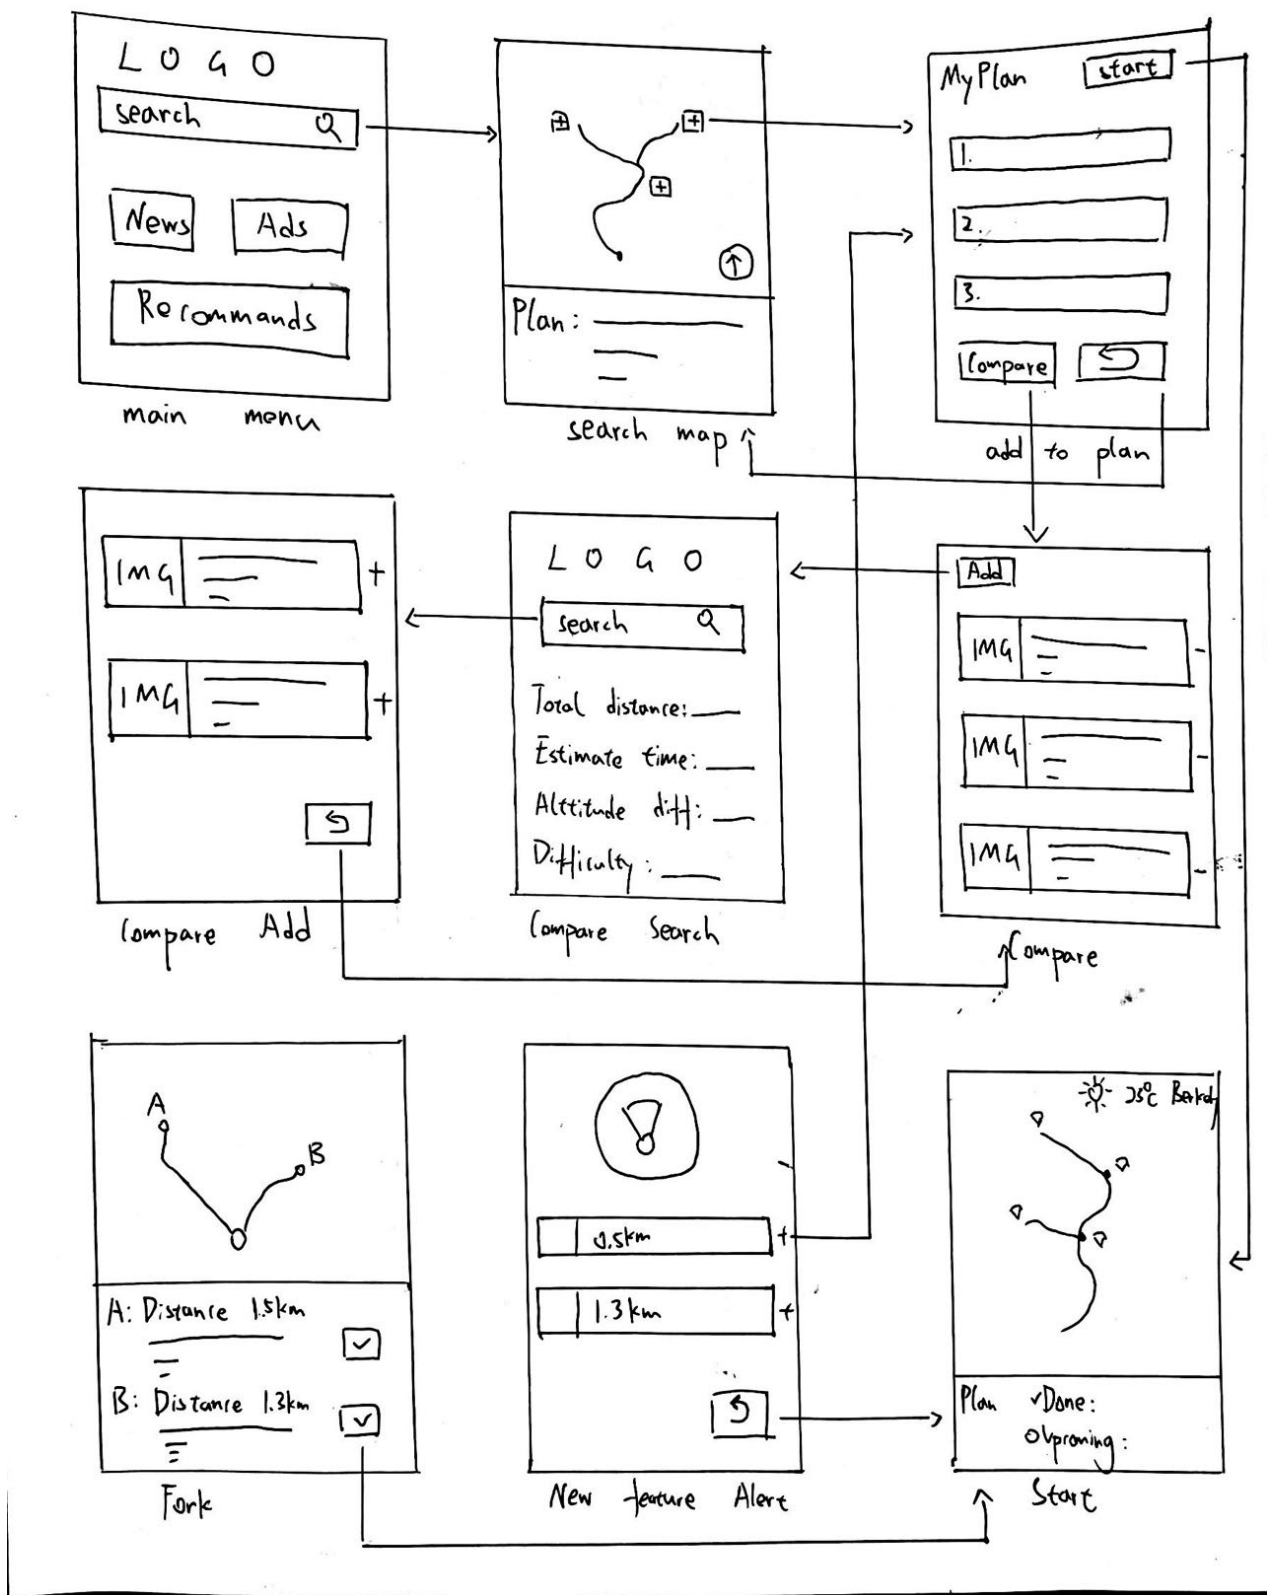 LOGO
search
News
Ads
Recommands
main menu
Plan:
search map
MyPlan
start
1.
2.
3.
Compare
add to plan
IMG
IMG
Compare Add
LOGO
search
Total distance:
Estimate time:
Alttitude diff:
Difficulty:
Compare Search
Add
IMG
IMG
IMG
Compare
A
B
A: Distance 1.5km
B: Distance 1.3km
Fork
0.5km
1.3km
New feature Alert
Plan ✓Done:
Start